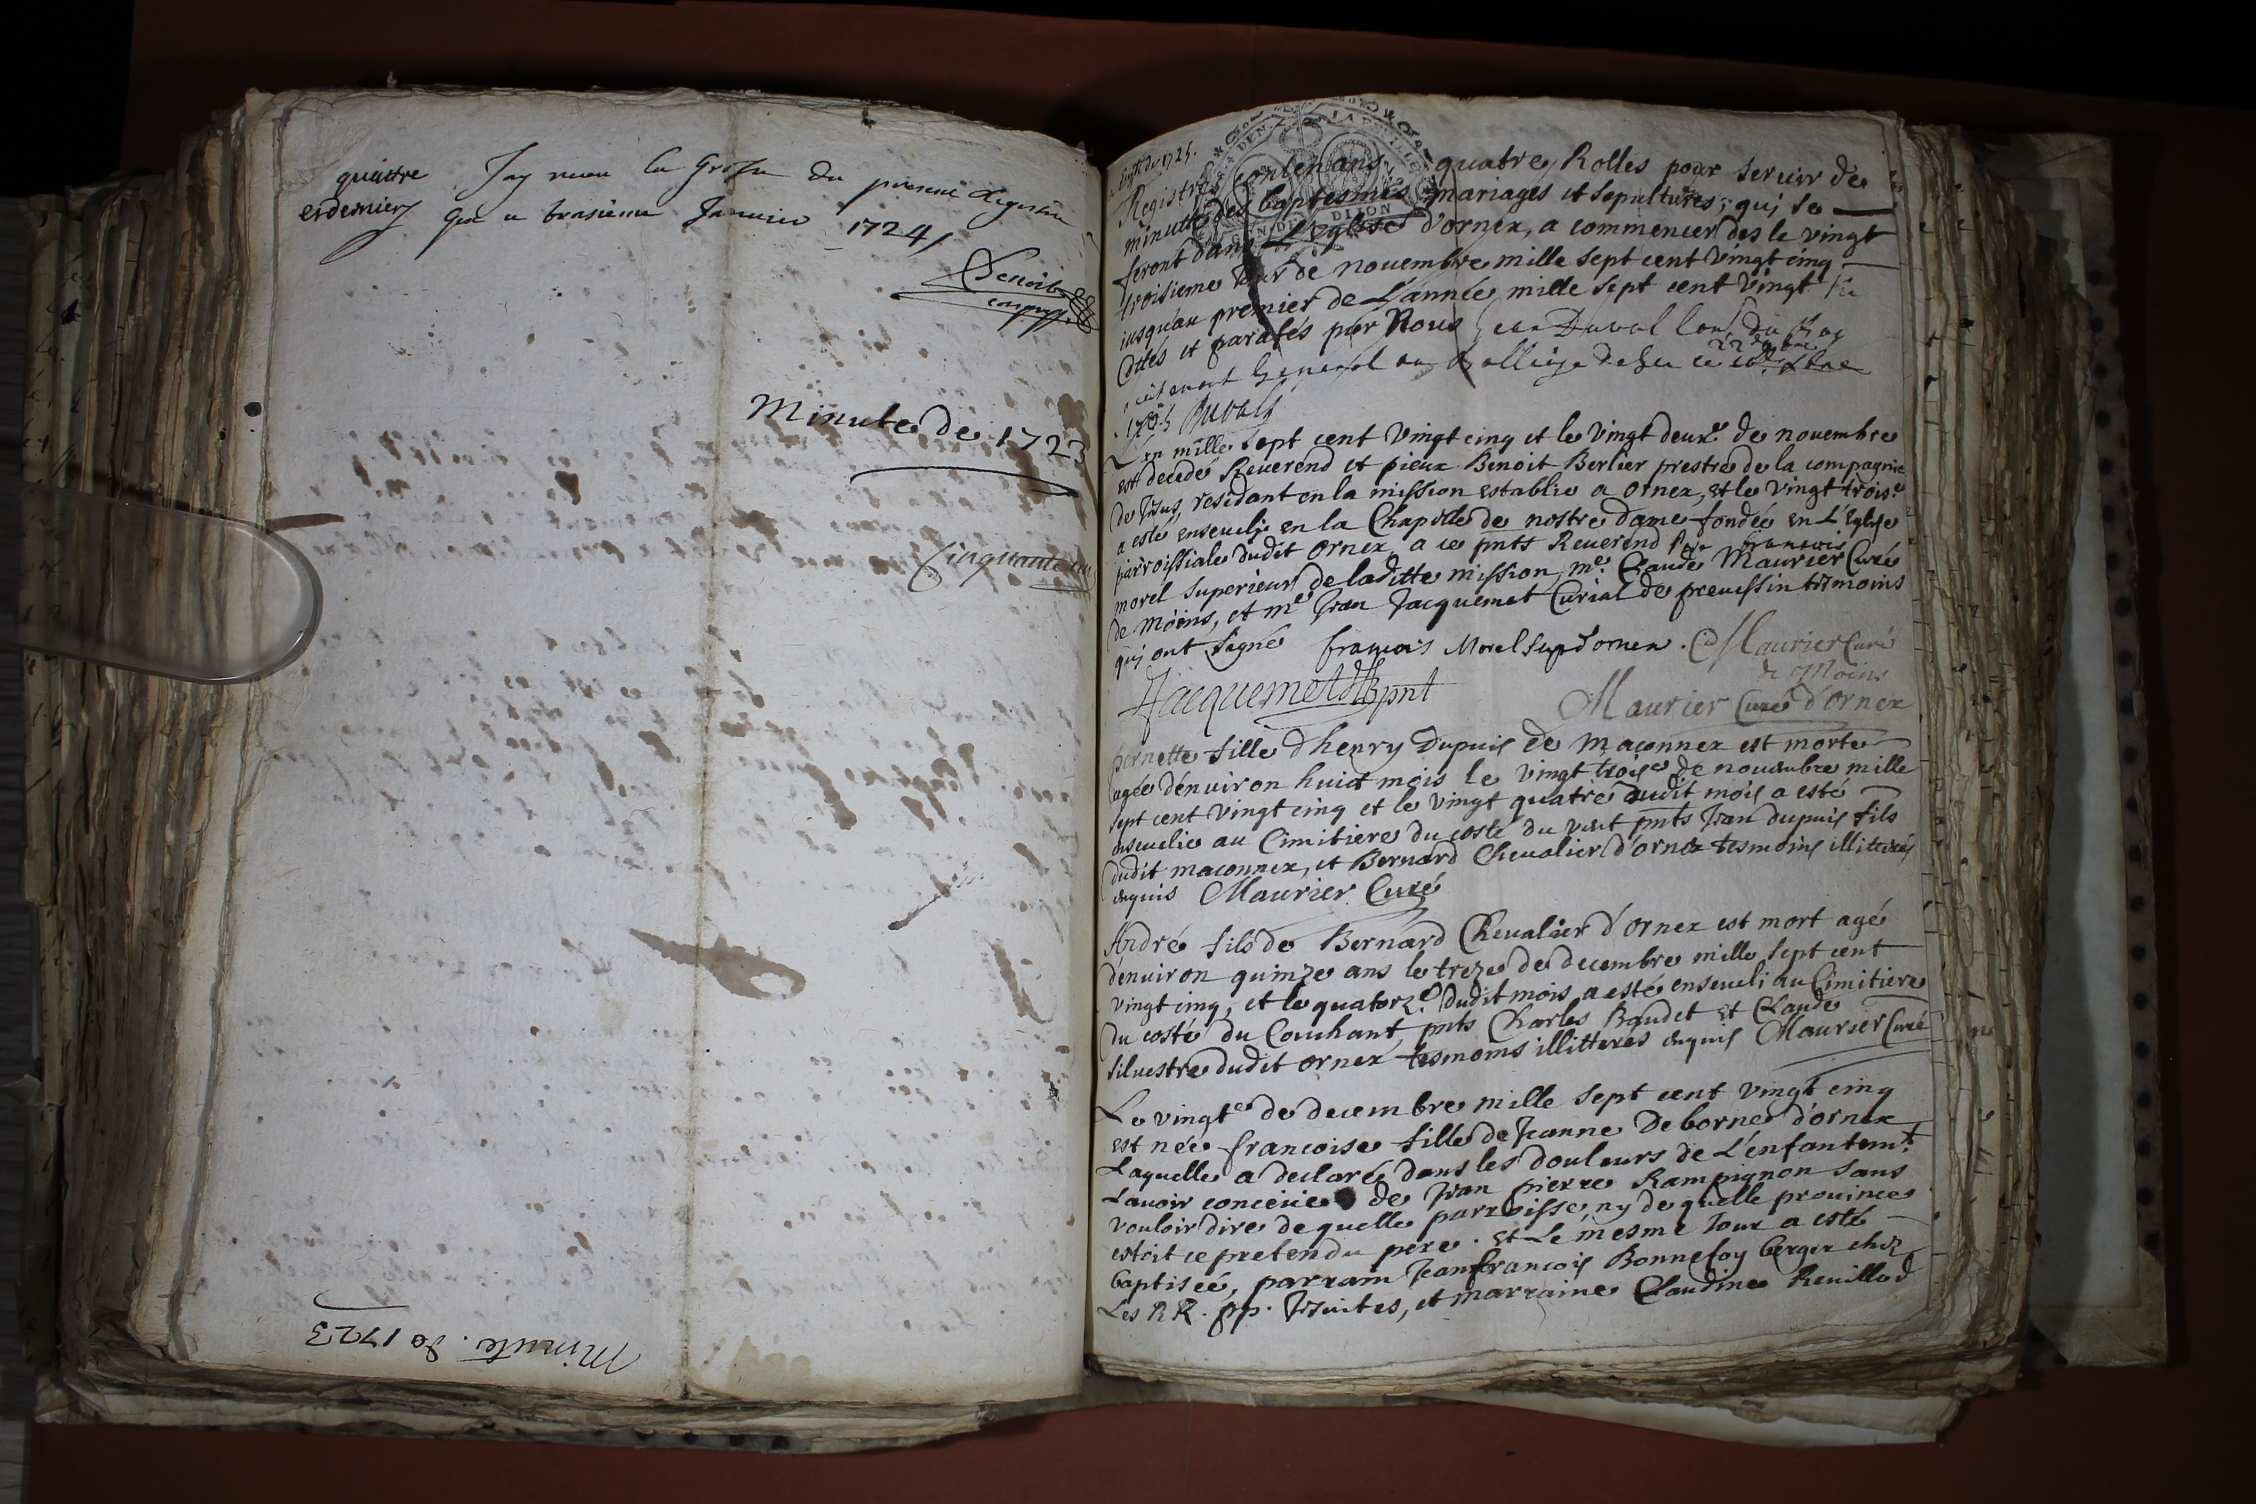 quattre
et dernier
Jay receu la Grosse du present Registre
ce troisieme Janvier 1724
Minute de 1723
Cinquante
Minute de 1723
1725.
Registre contenans quatre Rolles pour servir de
minutte des baptesmes mariages et sepultures, qui se
feront dans L'Eglise d'ornex, a commencer des le vingt
troisieme Jour de novembre mille sept cent vingt cinq
jusqu'au premier de L'année mille sept cent vingt six
Cottés et parafés par Nous Jean Duval Cons. du Roy
Lieutenant General au Balliage de Gex ce 22
1725 Duval
L'an mille sept cent vingt cinq et le vingt deuxe de novembre
est decedé Reverend et pieux Benoit Berlier prestre de la compagnie
de Jesus, residant en la mission establie a ornex, et le vingt troise
a esté enseveli en la Chapelle de nostre dame fondée en L'Eglise
parroissiale dudit ornex, a ce pnts Reverend Pere francois
morel superieur de laditte mission, me. Claude Maurier Curé
de Moëns, et me Jean Jacquemet Curial de prevessin tesmoins
qui ont signé francois Morel Sup d'ornex. C Maurier Curé
de Moëns
Jacquemet pnt Maurier Curé d'Ornex
pernette fille d'henry Dupuis de maconnex est morte
agée d'environ huict mois le vingt troise de novembre mille
sept cent vingt cinq et le vingt quatre dudit mois a esté
ensevelie au Cimitiere du costé du vent pnts Jean dupuis fils
dudit maconnex, et Bernard Chevalier d'ornex tesmoins illitterés
enquis Maurier Curé
André fils de Bernard Chevalier d'ornex est mort agé
d'environ quinze ans le treze de decembre mille sept cent
vingt cinq, et le quatorze dudit mois a esté enseveli au Cimitiere
du costé du Couchant, pnts Charles Baudet et Claude
silvestre dudit ornex tesmoins illitterés enquis Maurier Curé
Le vingte de decembre mille sept cent vingt cinq
est née francoise fille de Jeanne Deborne d'ornex
Laquelle a declaré dans les douleurs de L'enfantemt
L'avoir conceüe de Jean pierre Rampignon sans
vouloir dire de quelle parroisse, ny de quelle province
estoit ce pretendu pere. Et Le mesme Jour a esté
baptisée, parrain Jean francois Bonnefoy berger chez
Les RR. pp. Jesuites, et marraine Claudine Revillod